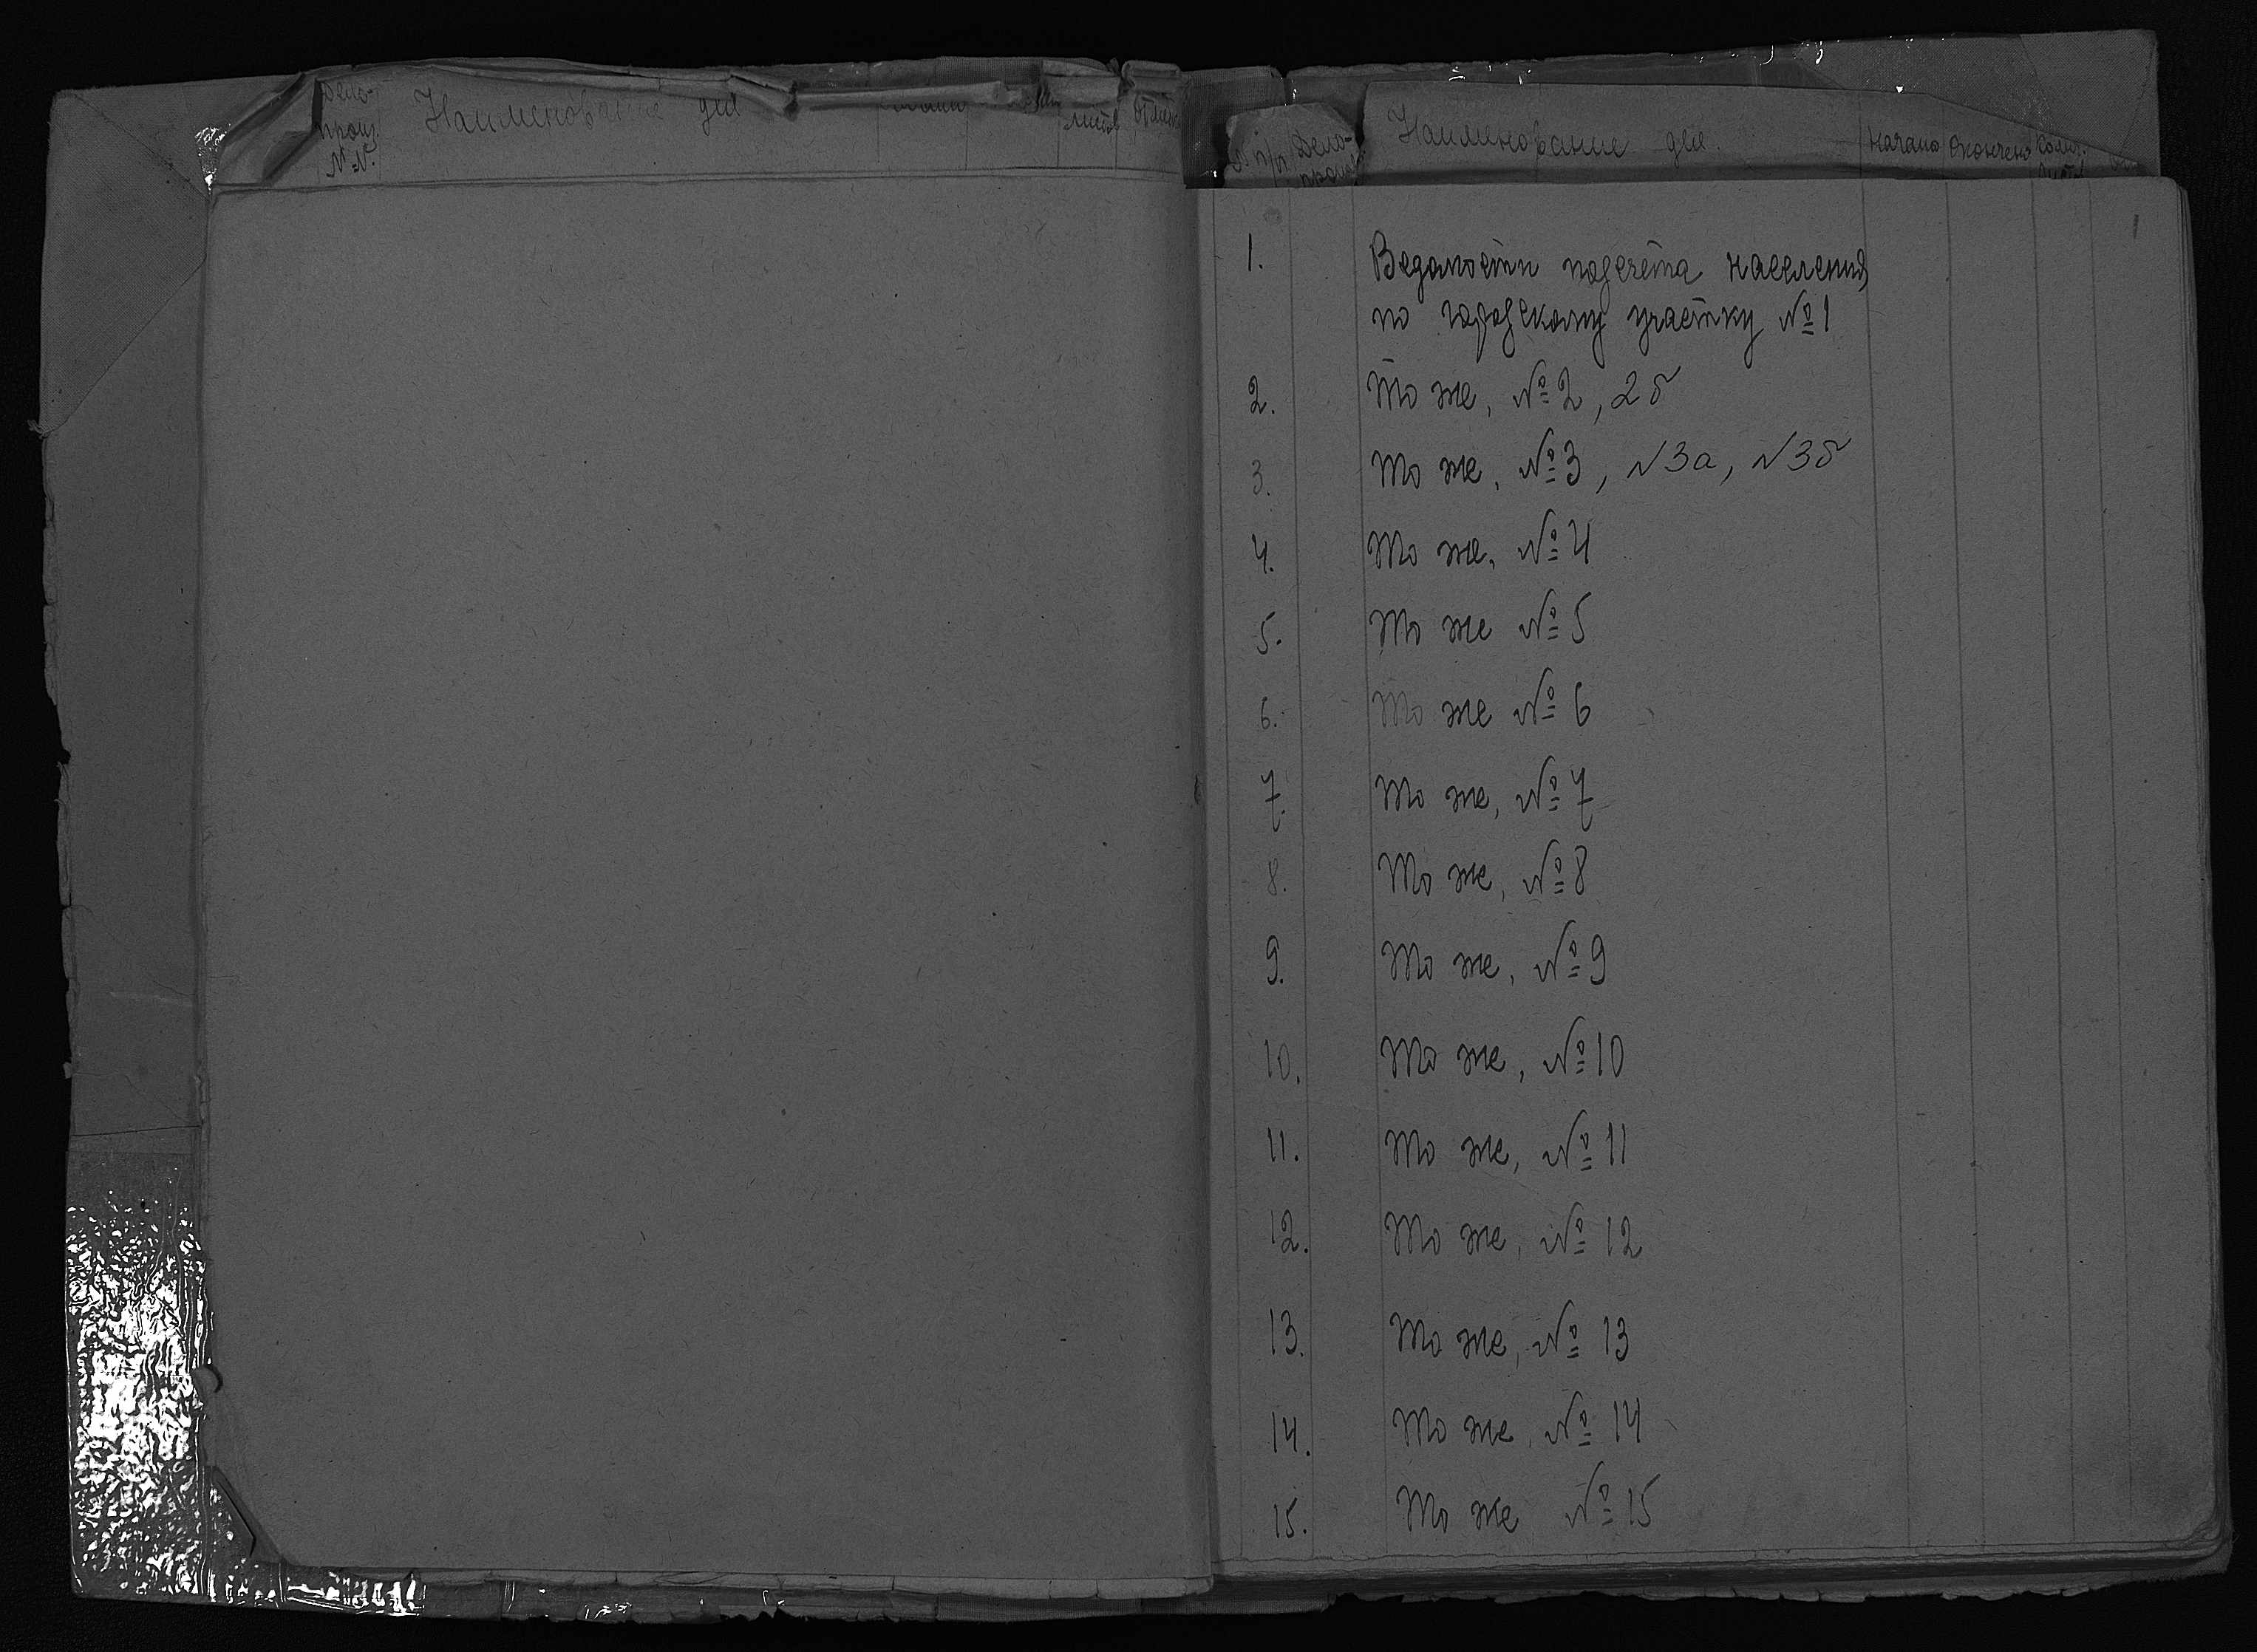 Дело-
произ.
№№
Наименование дел
листов
№ п/п
Дело-
произв.
Наименование дел
Начало
Окончено
Колич.
листов
1
1. Ведомости подсчёта населения
по городскому участку №1
2. То же, №2, 2б
3. То же, №3, №3а, №3б
4. То же, №4
5. То же №5
6. То же №6
7. То же, №7
8. То же, №8
9. То же, №9
10. То же, №10
11. То же, №11
12. То же, №12
13. То же, №13
14. То же, №14
15. То же №15